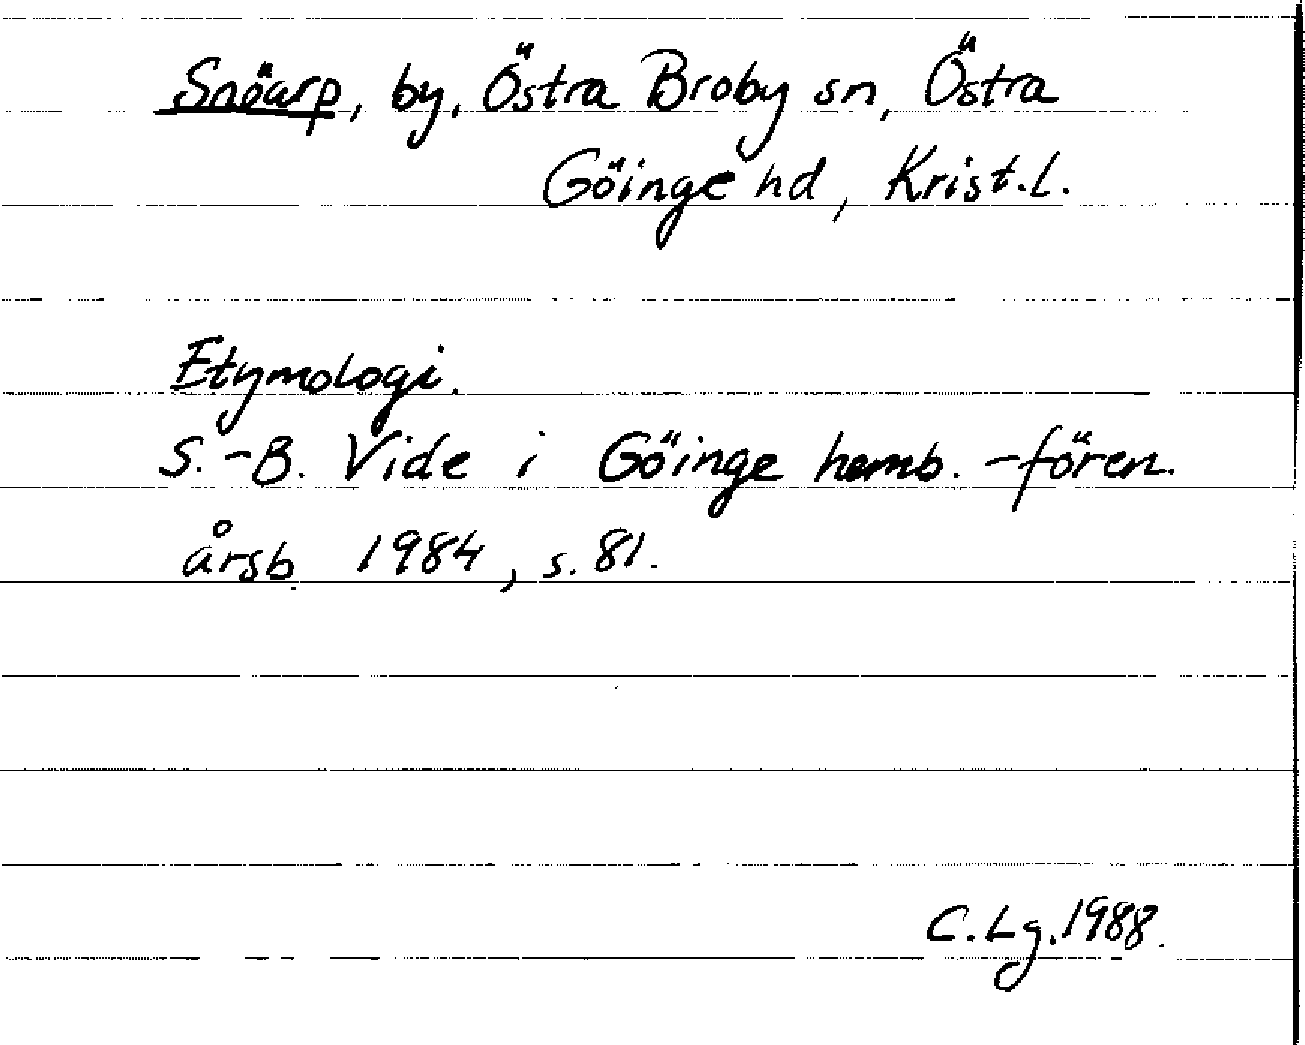 Snöarp, by, Östra Broby sn, Östra
Göinge hd, Krist.l.
Etymologi.
S.-B. Vide i Göinge hemb.-fören.
årsb. 1984, s. 81.
C.Lg.1988.